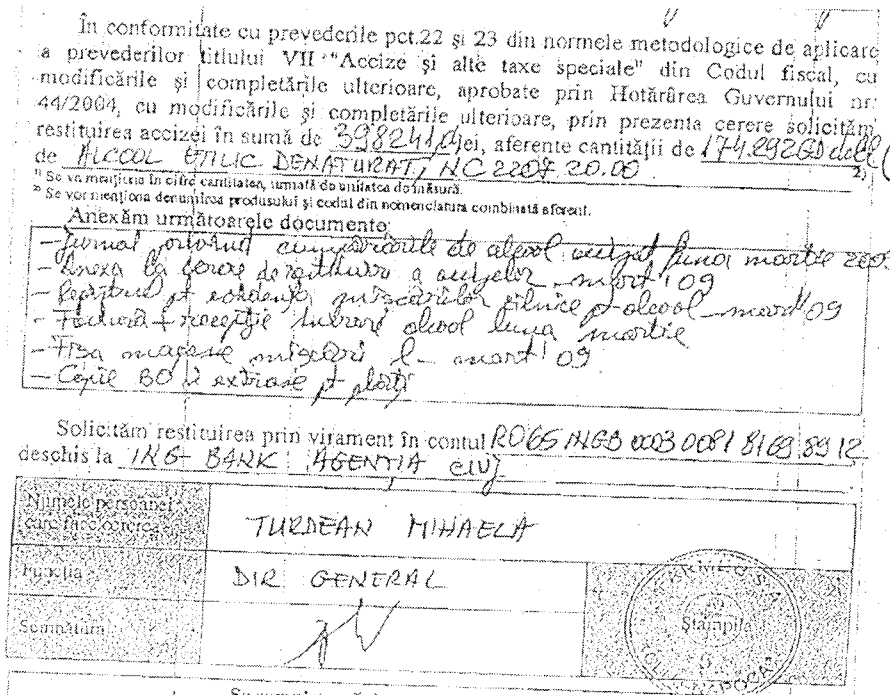 În conformitate cu prevederile pct.22 şi 23 din normele metodologice de aplicare
a prevederilor titlului VII "Accize şi alte taxe speciale" din Codul fiscal, cu
modificările şi completările ulterioare, aprobate prin Hotărârea Guvernului nr.
44/2004, cu modificările şi completările ulterioare, prin prezenta cerere solicităm
restituirea accizei în sumă de lei, aferente cantităţii de
de ALCOOL ETILIC DENATURAT, NC 2207.20.00 2)
1) Se va menţiona în cifre cantitatea, urmată de unitatea de măsură.
2) Se vor menţiona denumirea produsului şi codul din nomenclatura combinată aferent.
Anexăm următoarele documente:
- Jurnal privind de alcool luna martie
- Anexa la cerere de a - mart' 09
- pt alcool - mart' 09
- Factură + recepţie alcool luna martie
- Fişa magazie mişcări - mart' 09
- Copie BO extrase pt plăţi
Solicităm restituirea prin virament în contul RO65 INGB 0003 0081 8169 8912
deschis la ING BANK AGENŢIA CLUJ
Numele persoanei
care face cererea
TURDEAN MIHAELA
Funcţia
DIR GENERAL
Semnătura
Ştampila